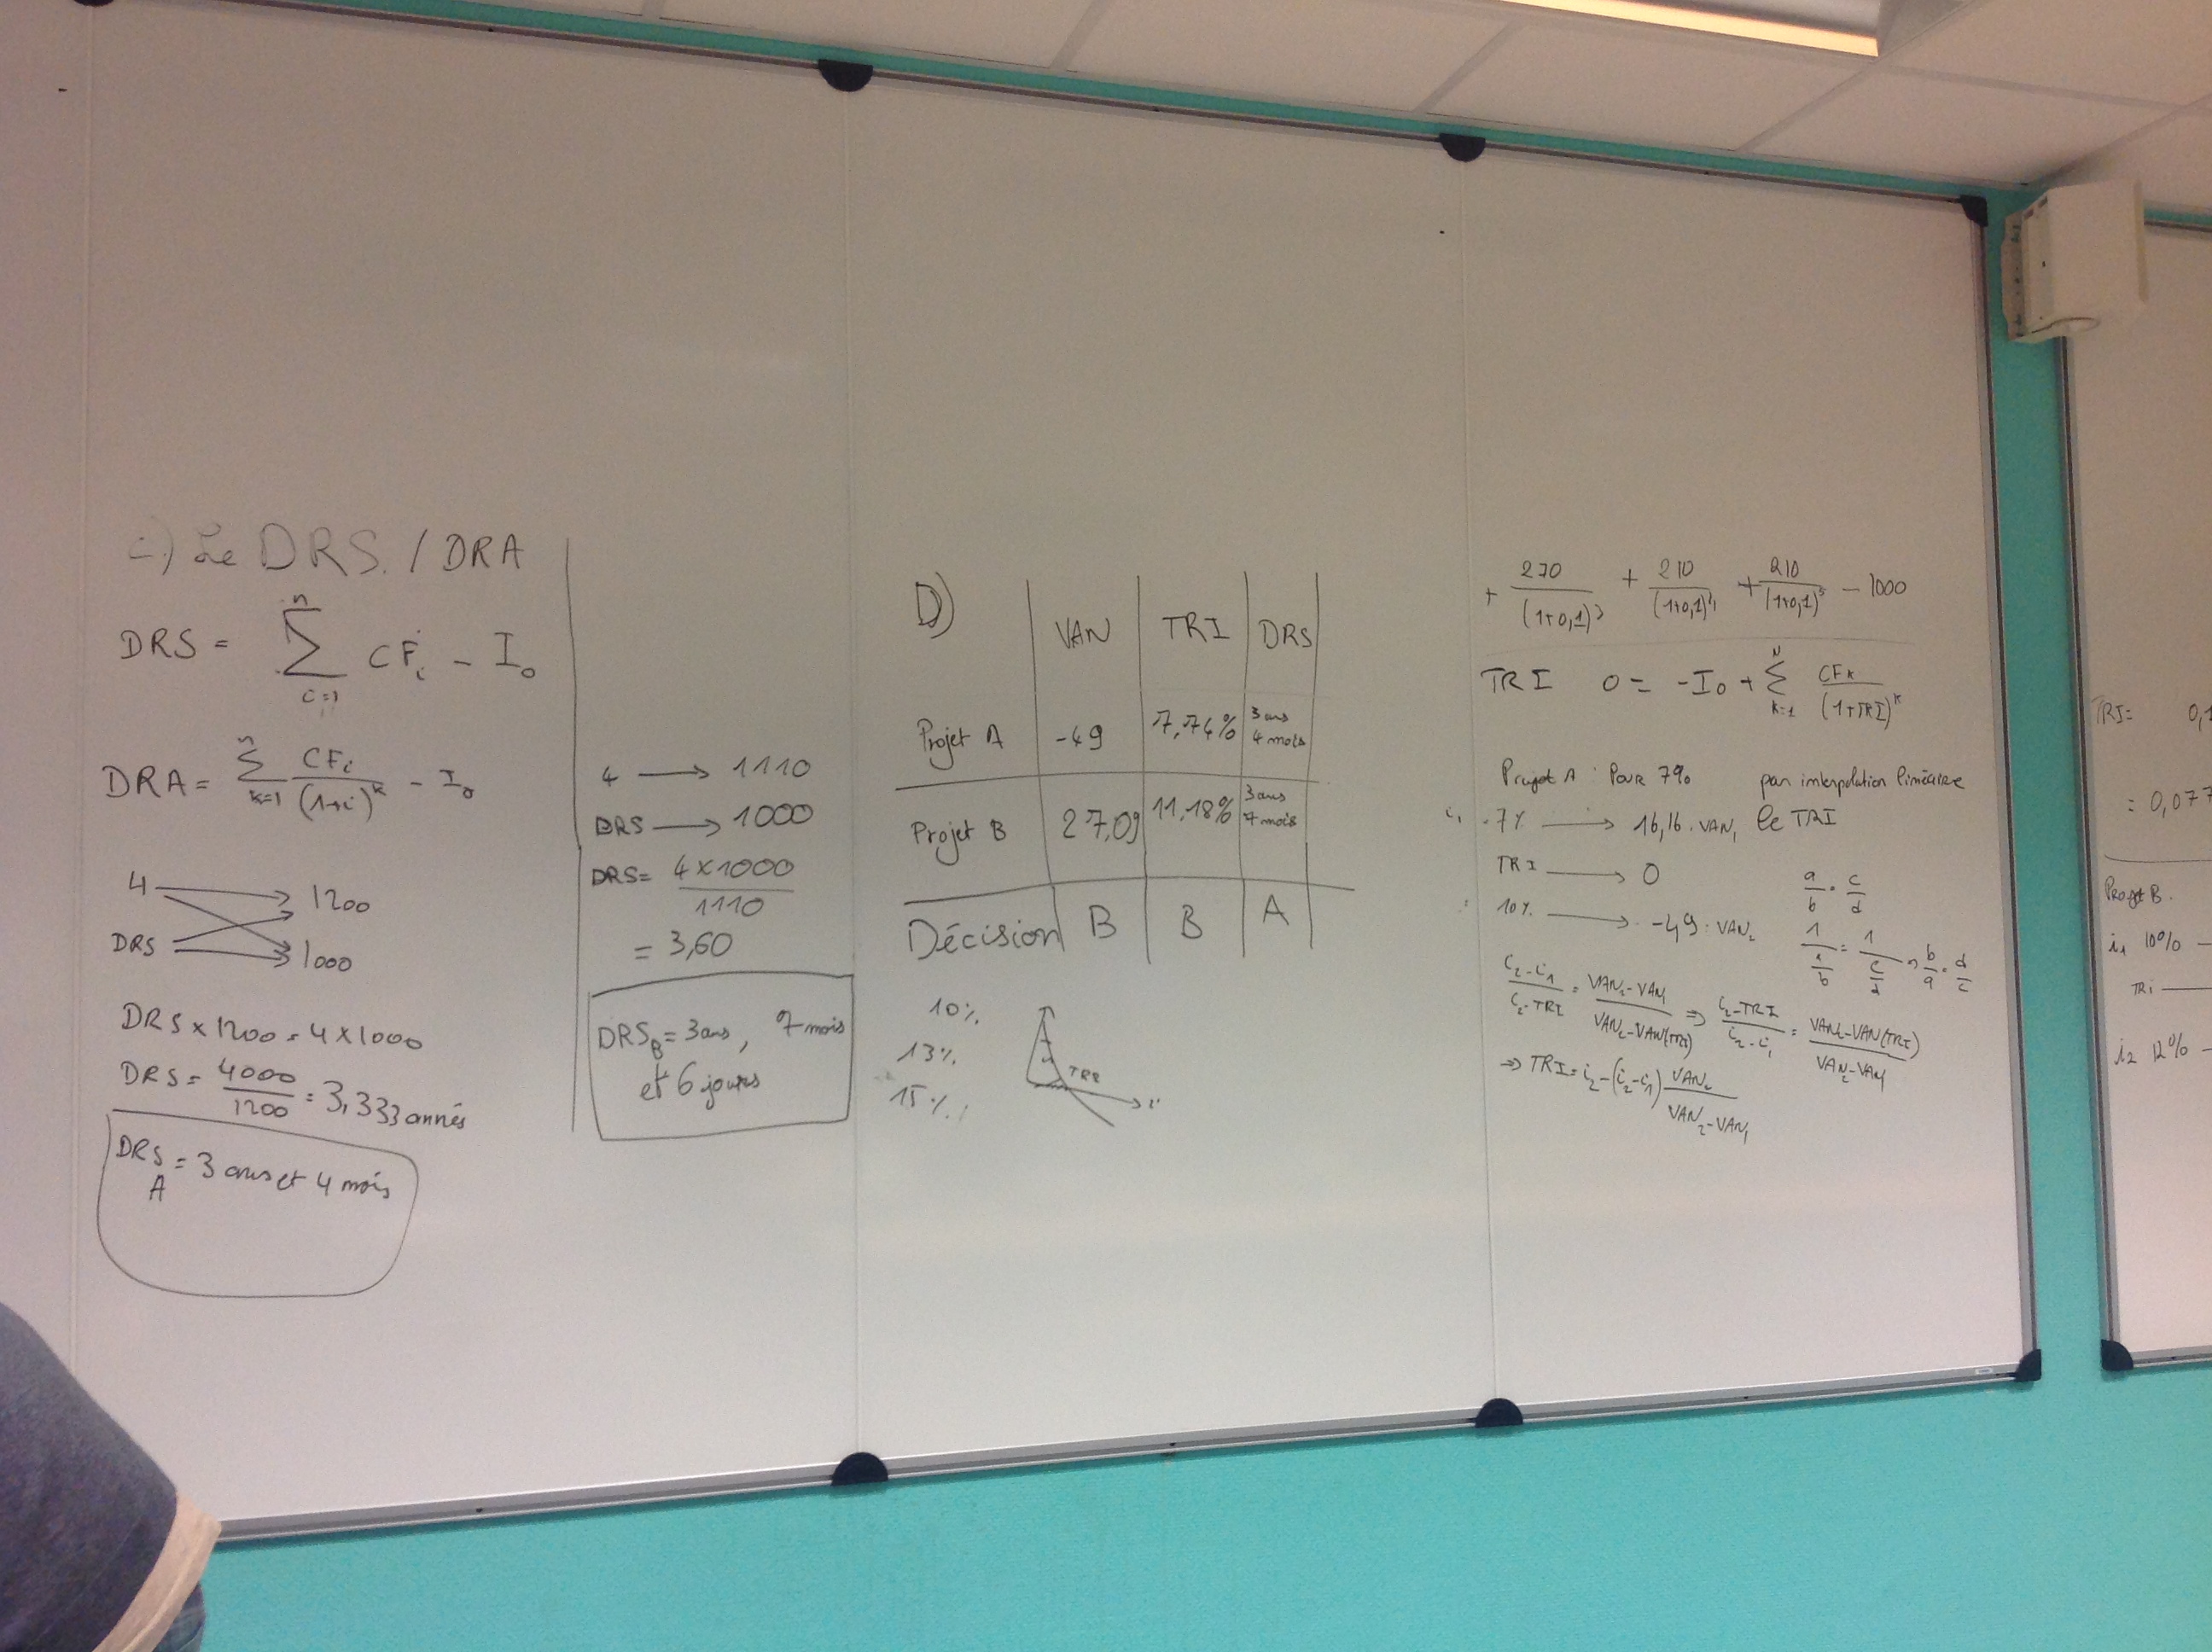 c) Le DRS. / DRA
DRS = n Σ i=1 CFi - I0
DRA = n Σ k=1 CFi / (1+i)^k - I0
4 → 1200
DRS → 1000
DRS x 1200 = 4 x 1000
DRS = 4000 / 1200 = 3,333 annés
DRS A = 3 ans et 4 mois
4 → 1110
DRS → 1000
DRS = 4 x 1000 / 1110
= 3,60
DRS B = 3 ans, 7 mois
et 6 jours
D)
VAN TRI DRS
Projet A -49 7,74% 3 ans 4 mois
Projet B 27,09 11,18% 3 ans 7 mois
Décision B B A
10%
13%
15%
TRI
i
+ 270 / (1+0,1)^3 + 210 / (1+0,1)^4 + 210 / (1+0,1)^5 - 1000
TRI 0 = -I0 + N Σ k=1 CFk / (1+TRI)^k
Projet A : Pour 7% par interpolation linéaire
i1 7% → 16,16 . VAN1 le TRI
TRI → 0
10% → -49 . VAN2
a/b = c/d
1 / (a/b) = 1 / (c/d) => b/a = d/c
(i2 - i1) / (i2 - TRI) = (VAN2 - VAN1) / (VAN2 - VAN(TRI)) => (i2 - TRI) / (i2 - i1) = (VAN2 - VAN(TRI)) / (VAN2 - VAN1)
=> TRI = i2 - (i2 - i1) VAN2 / (VAN2 - VAN1)
TRI = 0,1
= 0,077
Projet B.
i1 10% -
TRI -
i2 12% -